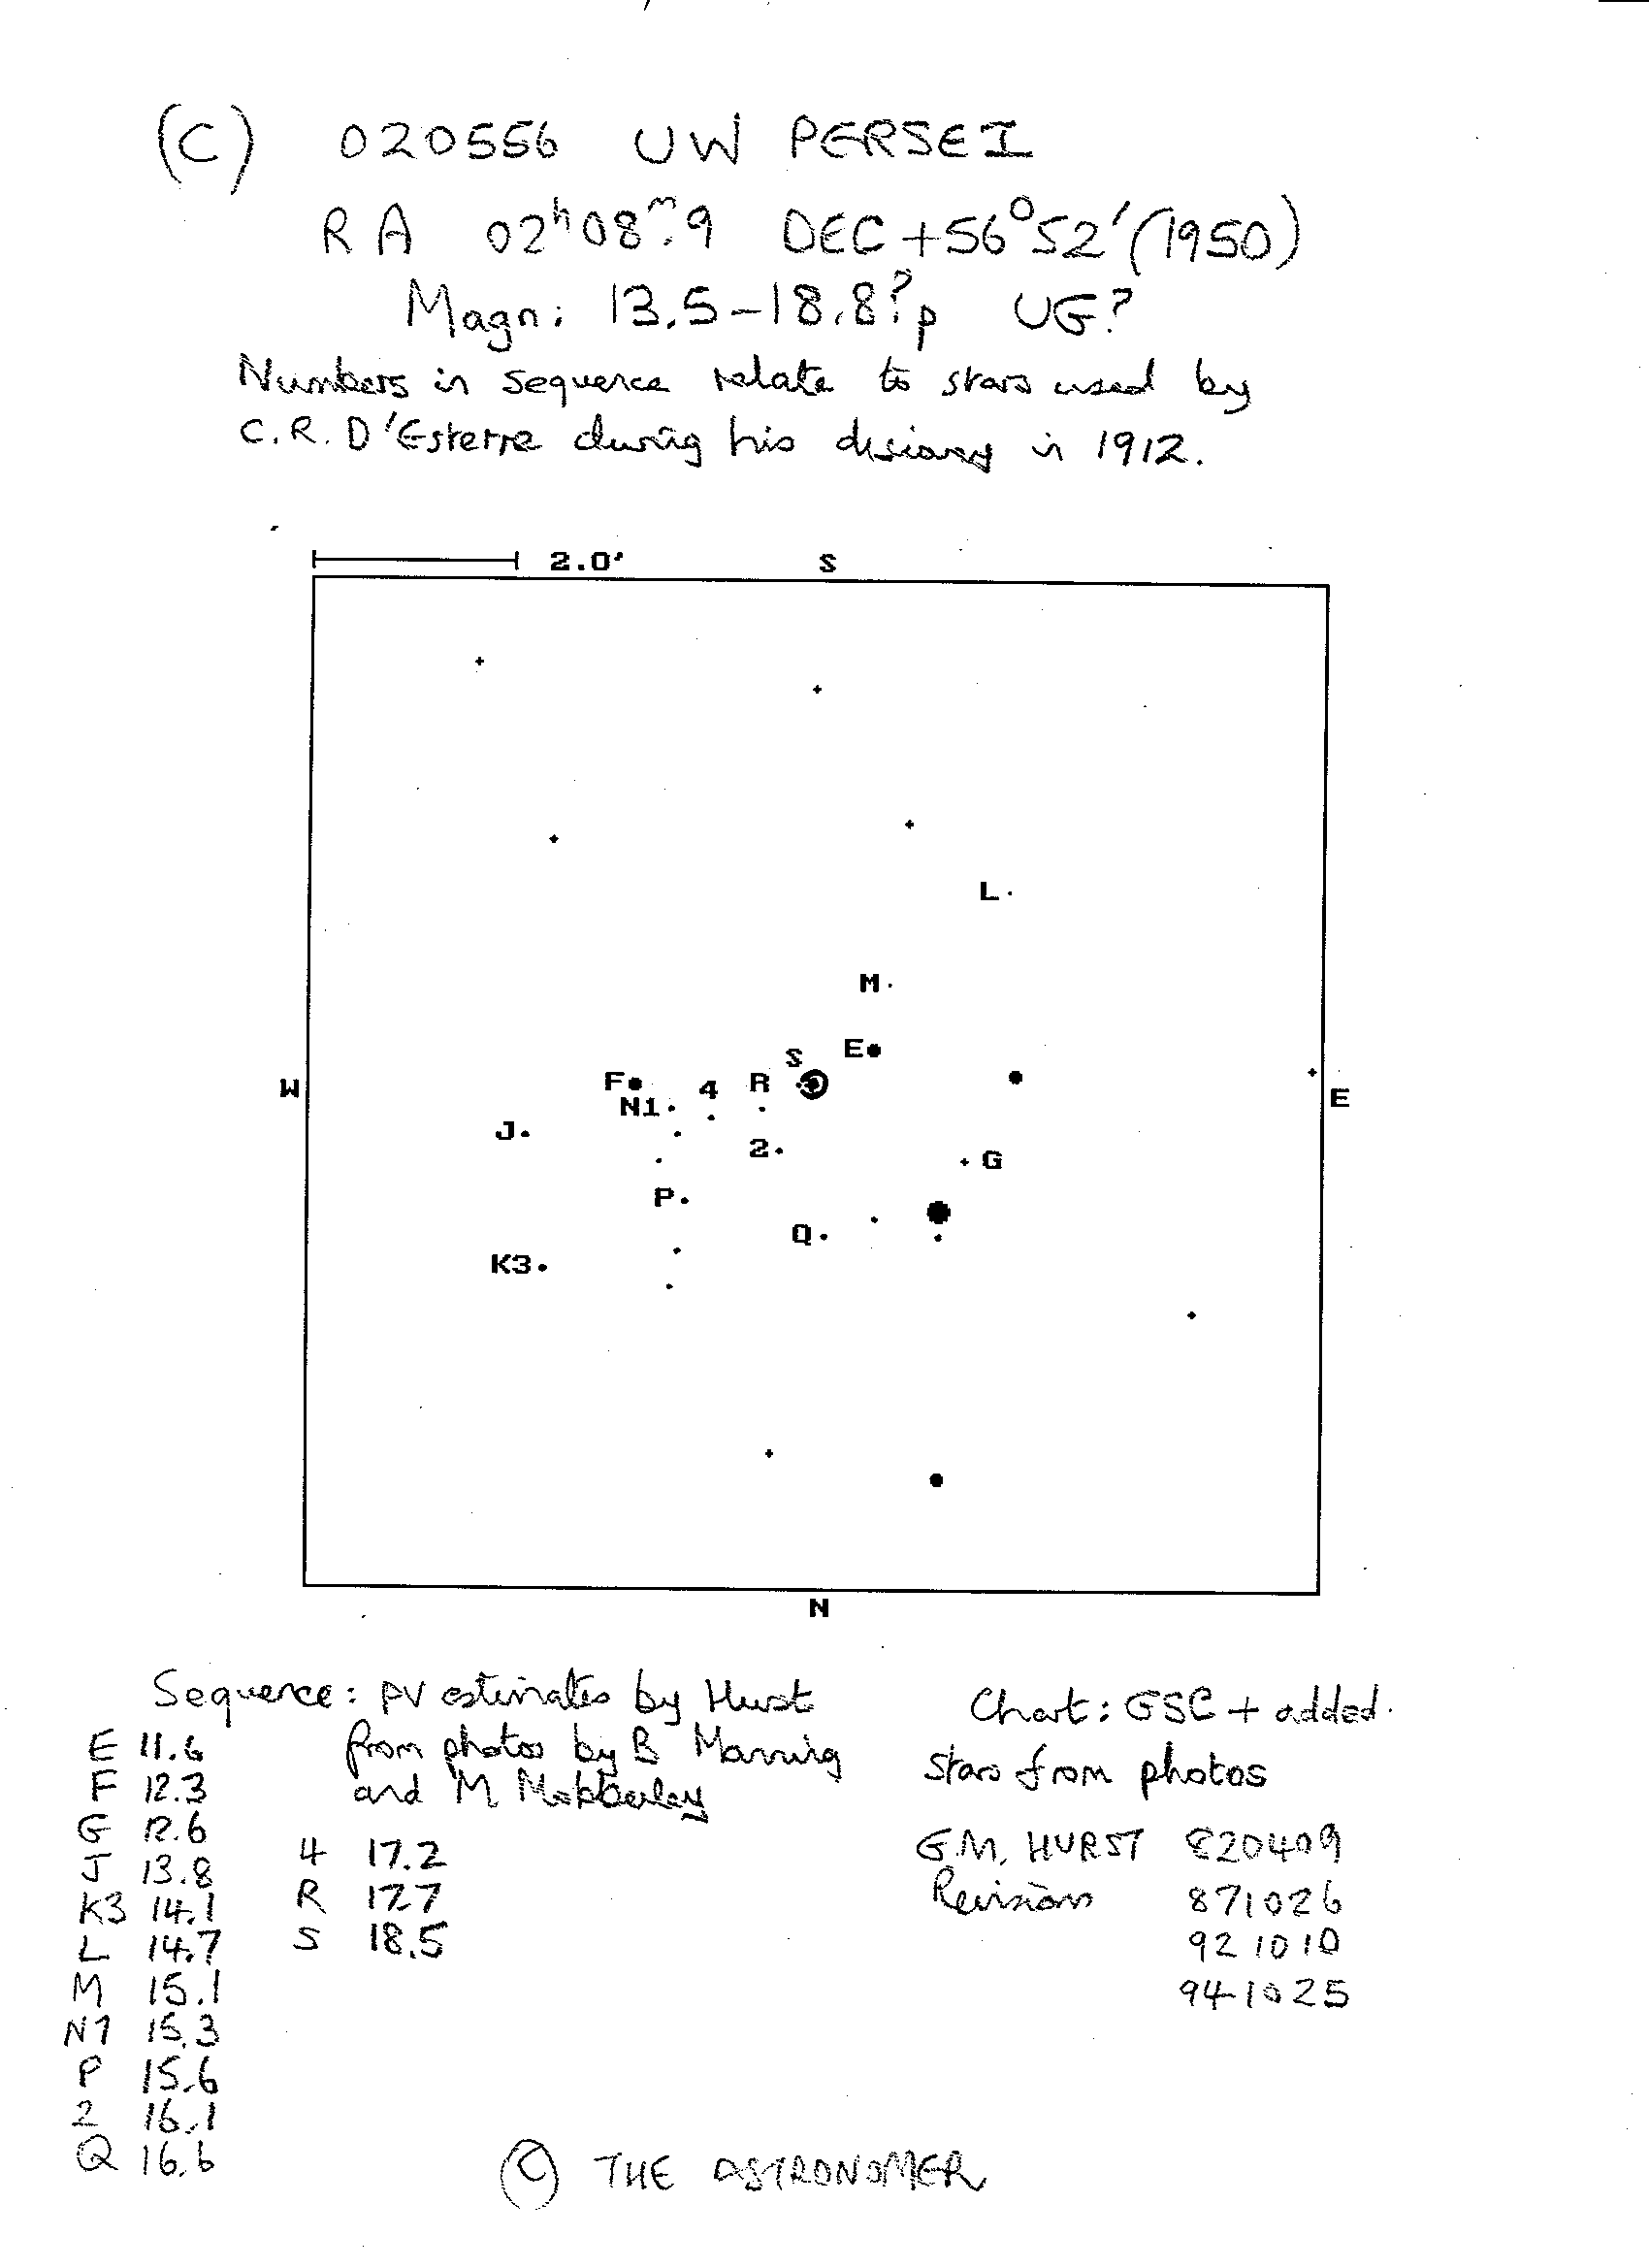 (C) 020556 UW PERSEI
RA 02ʰ08ᵐ.9 DEC +56°52′(1950)
Magn: 13.5-18.8?p UG?
Numbers in sequence relate to stars used by
C.R. D'Esterre during his discovery in 1912.
2.0' S
L
M
E
S
F 4 R
W
N1
E
J
2
G
P
Q
K3
N
Sequence: pv estimates by Hurst
from photos by B Manning
and M Mobberley
E 11.6
F 12.3
G 12.6
J 13.8
K3 14.1
L 14.7
M 15.1
N1 15.3
P 15.6
2 16.1
Q 16.6
4 17.2
R 17.7
S 18.5
Chart: GSC + added
stars from photos
G.M. HURST 820409
Revisions 871026
921010
941025
© THE ASTRONOMER